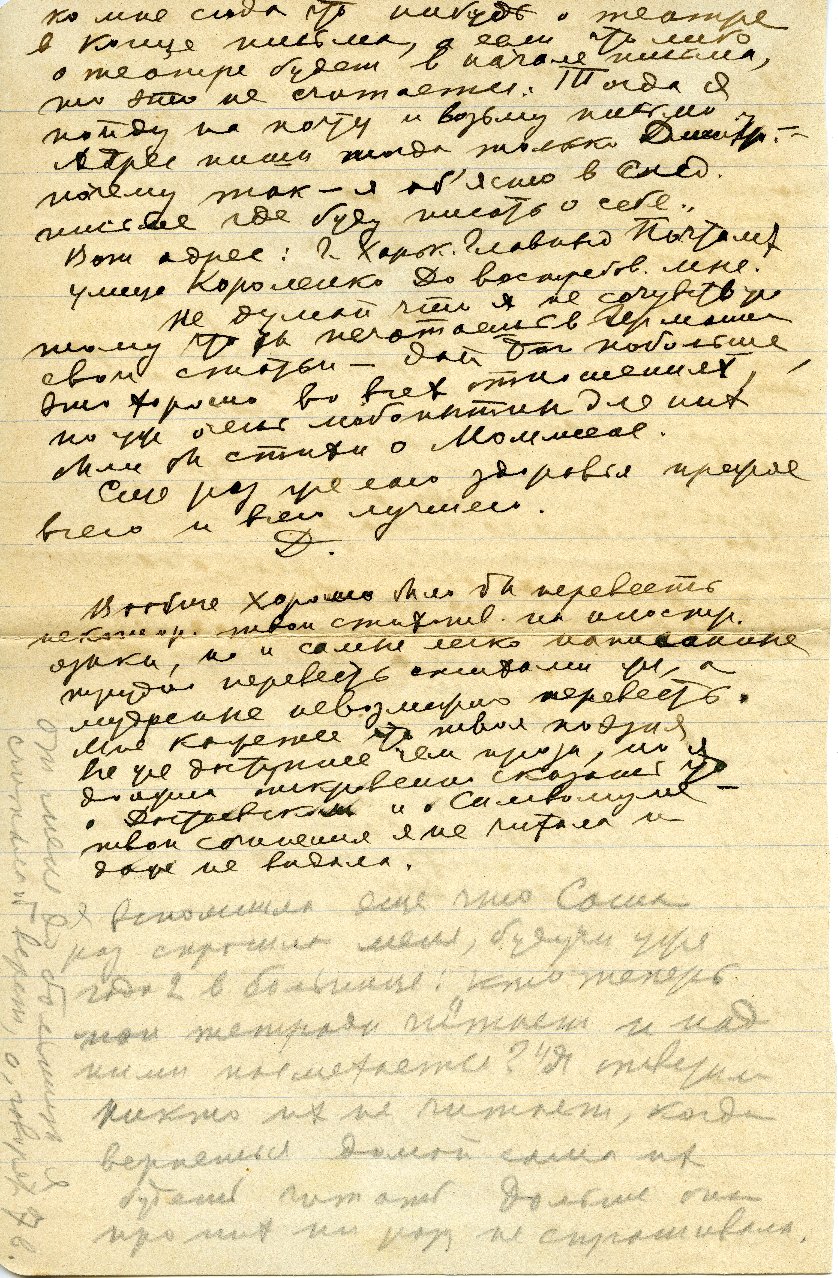 ко мне сюда что нибудь о театре
в конце письма, а если только
о театре будет в начале письма,
то это не считается. Тогда я
пойду на почту и возьму письмо.
Адрес пиши тогда только
почему так — я об'ясню в след.
письме где буду писать о себе.
Вот адрес: г. Харьк. Главный Почтамт
улица Короленко До востребов. мне.
Не думай что я не сочувствую
тому что ты печатаешь в Германии
свои статьи — дай Бог побольше
это хорошо во всех отношениях,
но уж очень любопытны для них
были бы стихи о
Еще раз желаю здоровья прежде
всего и всего лучшего.
Д.
Вообще хорошо было бы перевесть
некотор. твои стихотв. на иностр.
языки, но и самые легко написанные
трудно перевесть стихами же, а
мудреные невозможно перевесть.
Мне кажется что твоя поэзия
все же доступнее чем проза, но я
должна откровенно сказать что
о Достоевском и о Символизме —
твои сочинения я не читала и
даже не видала.
Я вспомнила еще что Саша
раз спросила меня, будучи уже
года 2 в больнице: "Кто теперь
мои тетради читает и над
ними насмехается?" Я ответила
никто их не читает, когда
вернешься домой сама их
будешь читать Больше она
про них ни разу не спрашивала.
от меня до больницы я
верст, а, говорят 7 в.